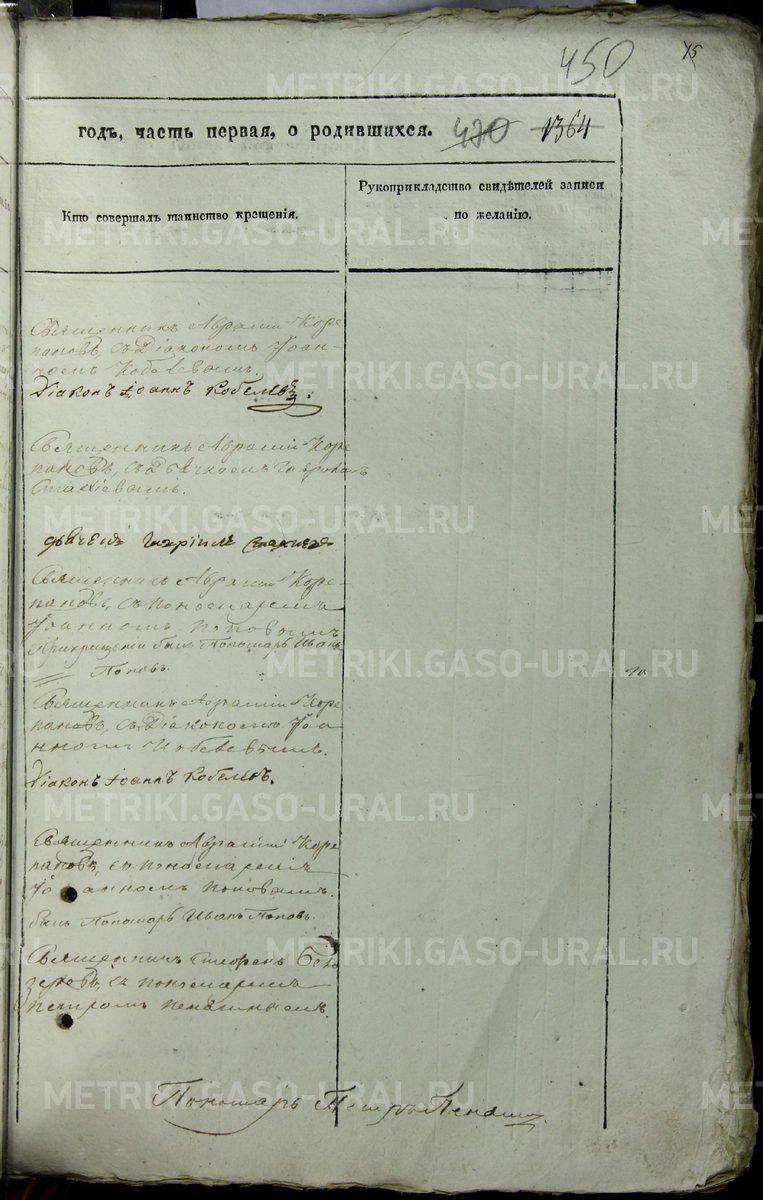 450
75
годъ, часть первая, о родившихся. 470 1364
Кто совершалъ таинство крещенія.
Рукоприкладство свидѣтелей записи
по желанію.
Священникъ Аврамій Коре
пановъ, съ Діакономъ Іоан-
номъ Кобелевымъ.
Діаконъ Іоаннъ Кобелевъ.
Священникъ Аврамій Коре
пановъ, съ Дьячкомъ Гавріиломъ
Стахіевымъ.
дьячекъ Гавріилъ
Священникъ Аврамій Коре-
пановъ, съ пономаремъ
Іоанномъ Поповымъ
при крещеніи былъ Пономарь Иванъ
Поповъ.
Священникъ Аврамій Коре
пановъ, съ Діакономъ Іоа
нномъ Кобелевымъ.
Діаконъ Іоаннъ Кобелевъ.
Священникъ Аврамій Коре
пановъ, съ пономаремъ
Іоанномъ Поповымъ.
былъ Пономарь Иванъ Поповъ.
Священникъ Бѣло
зеровъ, съ пономаремъ
Петромъ
Пономарь Петръ
METRIKI.GASO-URAL.RU